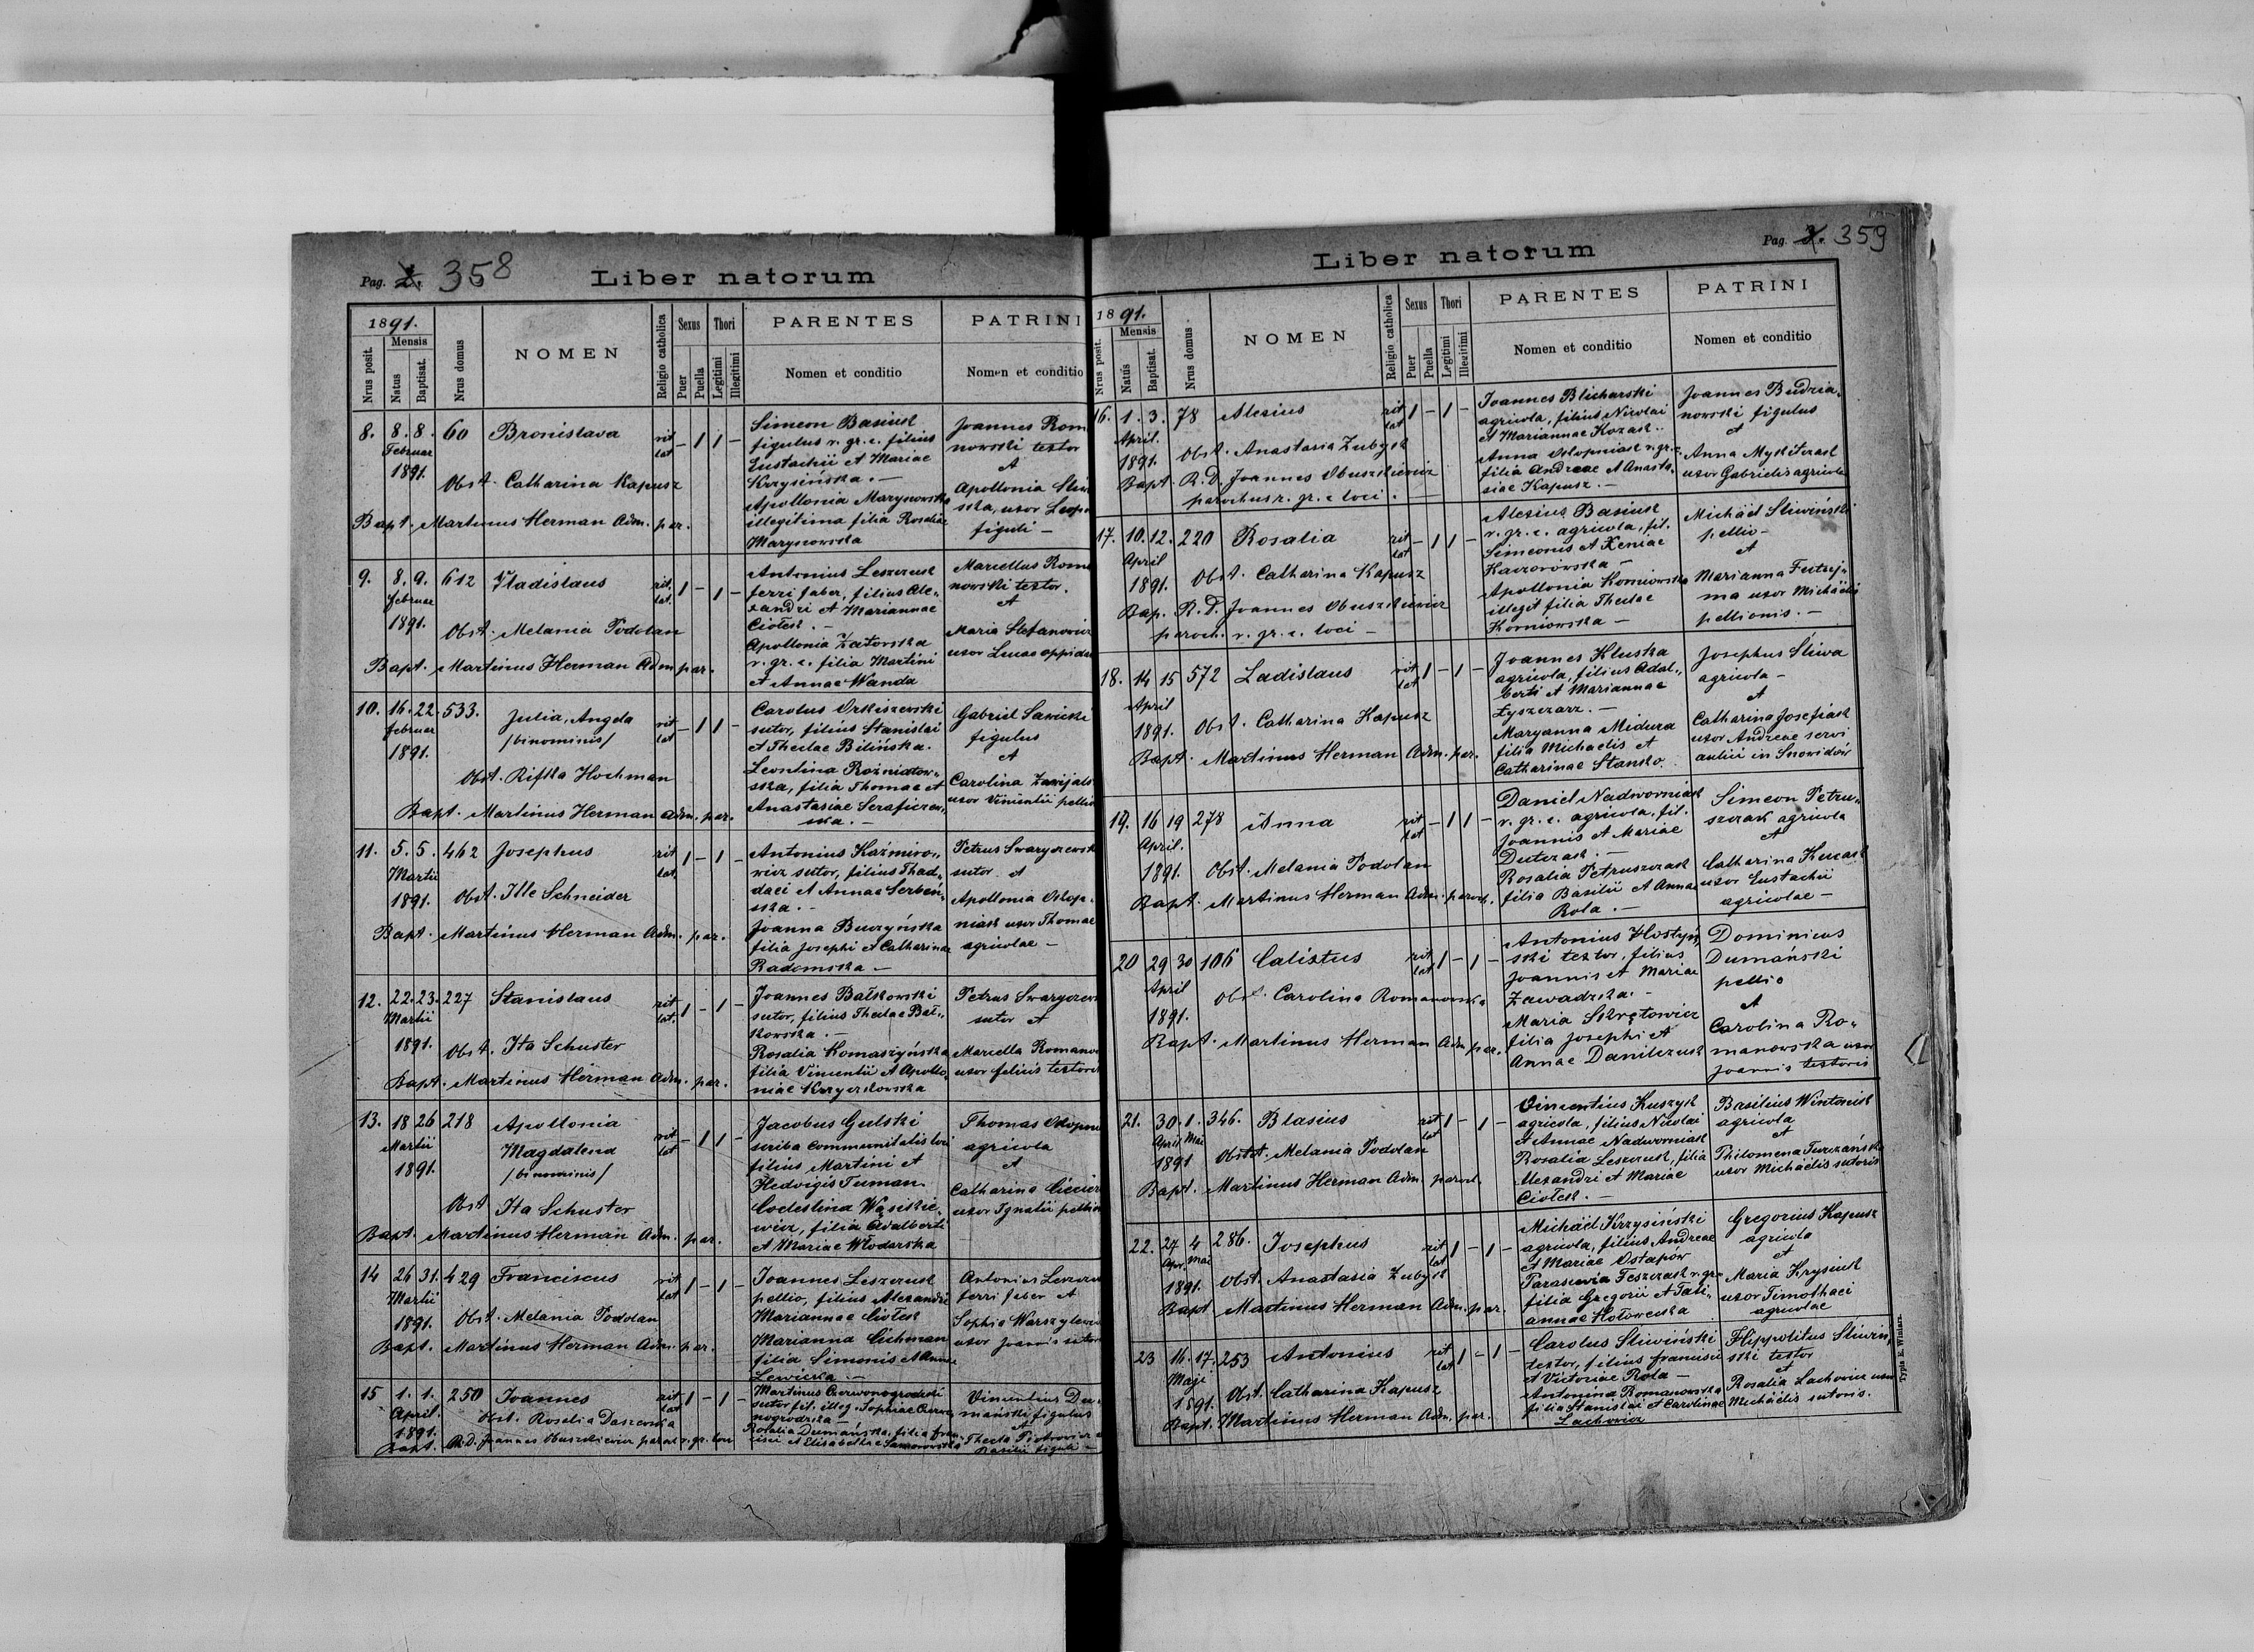 Pag. 2. 358
Liber natorum
1891.
Nrus posit.
Mensis
Natus
Baptisat.
Nrus domus
NOMEN
Religio catholica
Sexus
Puer
Puella
Thori
Legitimi
Illegitimi
PARENTES
Nomen et conditio
PATRINI
Nomen et conditio
8. 8. 8. 60 Bronislava rit. lat. – 1 1 –
Februar
1891.
Obst. Catharina Kapusz
Bapt. Martinus Herman Adm. par.
Simeon Basiuk
figulus r. gr. c. filius
Eustachii et Mariae
Krzysińska. —
Apollonia Marynowska
illegitima filia Rosaliae
Marynowska
Joannes Rom
nowski textor
et
Apollonia Sliw
ska, uxor Leop
figuli —
9. 8. 9. 612 Vladislaus rit. lat. 1 – 1 –
februar
1891.
Obst. Melania Podolan
Bapt. Martinus Herman Adm. par.
Antonius Leszczuk
ferri faber, filius Ale-
xandri et Mariannae
Ciołek. —
Apollonia Zatorska
r. gr. c. filia Martini
et Annae Wanda
Marcellus Roma
nowski textor.
et
Maria Stefanowicz
uxor Lucae oppida
10. 16. 22. 533. Julia, Angela rit. lat. – 1 1 –
februar
/binominis/
1891.
Obst. Rifka Hochman
Bapt. Martinus Herman Adm. par.
Carolus Orkiszewski
sutor, filius Stanislai
et Theclae Bilińska.
Leontina Rożniatow-
ska, filia Thomae et
Anastasiae Seraficzew-
ska. —
Gabriel Sawicki
figulus
et
Carolina
uxor Vincentii pellio
11. 5. 5. 462 Josephus rit. lat. 1 – 1 –
Martii
1891.
Obst. Itte Schneider
Bapt. Martinus Herman Adm. par.
Antonius Kaźmiro-
wicz sutor, filius Thad-
daei et Annae Serbeń-
ska. —
Joanna Buczyńska
filia Josephi et Catharinae
Radomska —
Petrus Swaryczewsk
sutor et
Apollonia Oslop-
niak uxor Thomae
agricolae —
12. 22. 23. 227 Stanislaus rit. lat. 1 – 1 –
Martii
1891.
Obst. Ita Schuster
Bapt. Martinus Herman Adm. par.
Joannes Bałkowski
sutor, filius Theclae Bał-
kowska. —
Rosalia Komaszyńska
filia Vincentii et Apollo-
niae Krzyczkowska
Petrus Swaryczew
sutor et
Marcella Romano
uxor felicis textoris
13. 18 26 218 Apollonia rit. lat. – 1 1 –
Martii
Magdalena
1891.
/binominis/
Obst. Ita Schuster
Bapt. Martinus Herman Adm. par.
Jacobus Gulski
scriba communitatis loci
filius Martini et
Hedvigis Tuman.
Coelestina Wąsikie-
wicz, filia Adalberti
et Mariae Włodarska
Thomas Oslopni
agricola
et
Catharina
uxor Ignatii pellion
14 26 31. 429 Franciscus rit. lat. 1 – 1 –
Martii
1891.
Obst. Melania Podolan
Bapt. Martinus Herman Adm. par.
Joannes Leszczuk
pellio, filius Alexandri
Mariannae Ciołek
Marianna Cichman
filia Simonis et Annae
Lewicka. —
Antonius Leszczu
ferri faber et
Sophia Warszylewi
uxor Joannis sutor
15 1. 1. 250 Joannes rit. lat. 1 – 1 –
April.
Obst. Rosalia Daszewska
1891.
Bapt. R. D. Joannes Obuszkiewicz paroch r. gr. loci
Martinus Czerwonogrodzki
sutor fil. illeg. Sophiae Czerwo
nogrodzka —
Rosalia Dumańska, filia Fran-
cisci et Elisabethae
Vincentius Du-
mański figulus
et
Thecla Piotrowicz
Basilii figuli —
Pag. 3. 359
Liber natorum
1891.
Nrus posit.
Mensis
Natus
Baptisat.
Nrus domus
NOMEN
Religio catholica
Sexus
Puer
Puella
Thori
Legitimi
Illegitimi
PARENTES
Nomen et conditio
PATRINI
Nomen et conditio
16. 1. 3. 78 Alexius rit. lat. 1 – 1 –
April.
1891.
Obst. Anastasia Zubyk
Bapt. R. D. Joannes Obuszkiewicz
parochus r. gr. c loci. —
Joannes Blicharski
agricola, filius Nicolai
et Mariannae Kozak..
Anna Oslopniak r. gr. c
filia Andreae et Anasta-
siae Kapusz. —
Joannes Budzia-
nowski figulus
et
Anna Mykitczak
uxor Gabrielis agricola
17. 10. 12. 220 Rosalia rit. lat. – 1 1 –
April
1891.
Obst. Catharina Kapusz
Bap. R. D. Joannes Obuszkiewicz
paroch. r. gr. c. loci —
Alexius Basiuk
r. gr. c. agricola, fil.
Simeonis et Xeniae
Kaczorowska —
Apollonia Korniowska
illegit filia Theclae
Korniowska —
Michäel Sliwiński
pellio —
et
Marianna Futrej-
ma uxor Michäelis
pellionis. —
18. 14 15 572 Ladislaus rit. lat. 1 – 1 –
April
1891.
Obst. Catharina Kapusz
Bapt. Martinus Herman Adm. par.
Joannes Kluska
agricola, filius Adal-
berti et Mariannae
Łyszczarz. —
Maryanna Midura
filia Michaelis et
Catharinae Stanko.
Josephus Sliwa
agricola —
et
Catharina Josefiak
uxor Andreae servi
aulici in Snowidów
19. 16 19 278 Anna rit. lat. – 1 1 –
April.
1891.
Obst. Melania Podolan
Bapt. Martinus Herman Adm. paroch.
Daniel Nadworniak
r. gr. c. agricola, fil.
Joannis et Mariae
Dutczak. —
Rosalia Petruszczak
filia Basilii et Annae
Rola. —
Simeon Petru-
szczak agricola
et
Catharina Kuczak
uxor Eustachii
agricolae —
20 29 30 106 Calixtus rit. lat. 1 – 1 –
April
1891.
Obst. Carolina Romanowska
Bapt. Martinus Herman Adm par.
Antonius Hostyń-
ski textor, filius
Joannis et Mariae
Zawadzka. —
Maria Skrętowicz
filia Josephi et
Annae Danilczuk
Dominicus
Dumański
pellio
et
Carolina Ro-
manowska uxor
Joannis textoris
21. 30. 1. 346. Blasius rit. lat. 1 – 1 –
April Mai
1891
Obst. Melania Podolan
Bapt. Martinus Herman Adm. paroch.
Vincentius Kuszyk
agricola, filius Nicolai
et Annae Nadworniak
Rosalia Leszczuk, filia
Alexandri et Mariae
Ciołek. —
Basilius Wintoniuk
agricola
et
Philomena Turczańska
uxor Michäelis sutoris
22. 27 4 286. Josephus rit. lat. 1 – 1 –
Apr. Mai
1891.
Obst. Anastasia Zubyk
Bapt. Martinus Herman Adm. par.
Michäel Krzysiński
agricola, filius Andreae
et Mariae Ostapów
Parascevia Feszczak r. gr. c
filia Gregorii et Tati-
annae Hołowecka
Gregorius Kapusz
agricola
et
Maria Krysiuk
uxor Timothaei
agricolae
23 16. 17. 253 Antonius rit. lat. 1 – 1 –
Maji
1891.
Obst. Catharina Kapusz
Bapt. Martinus Herman Adm. par.
Carolus Sliwiński
textor, filius francisci
et Victoriae Rola —
Antonina Romanowska
filia Stanislai et Carolinae
Lachowicz
Hippolitus Sliwiń-
ski textor
et
Rosalia Lachowicz uxor
Michäelis sutoris.
Typis E. Winiarz.